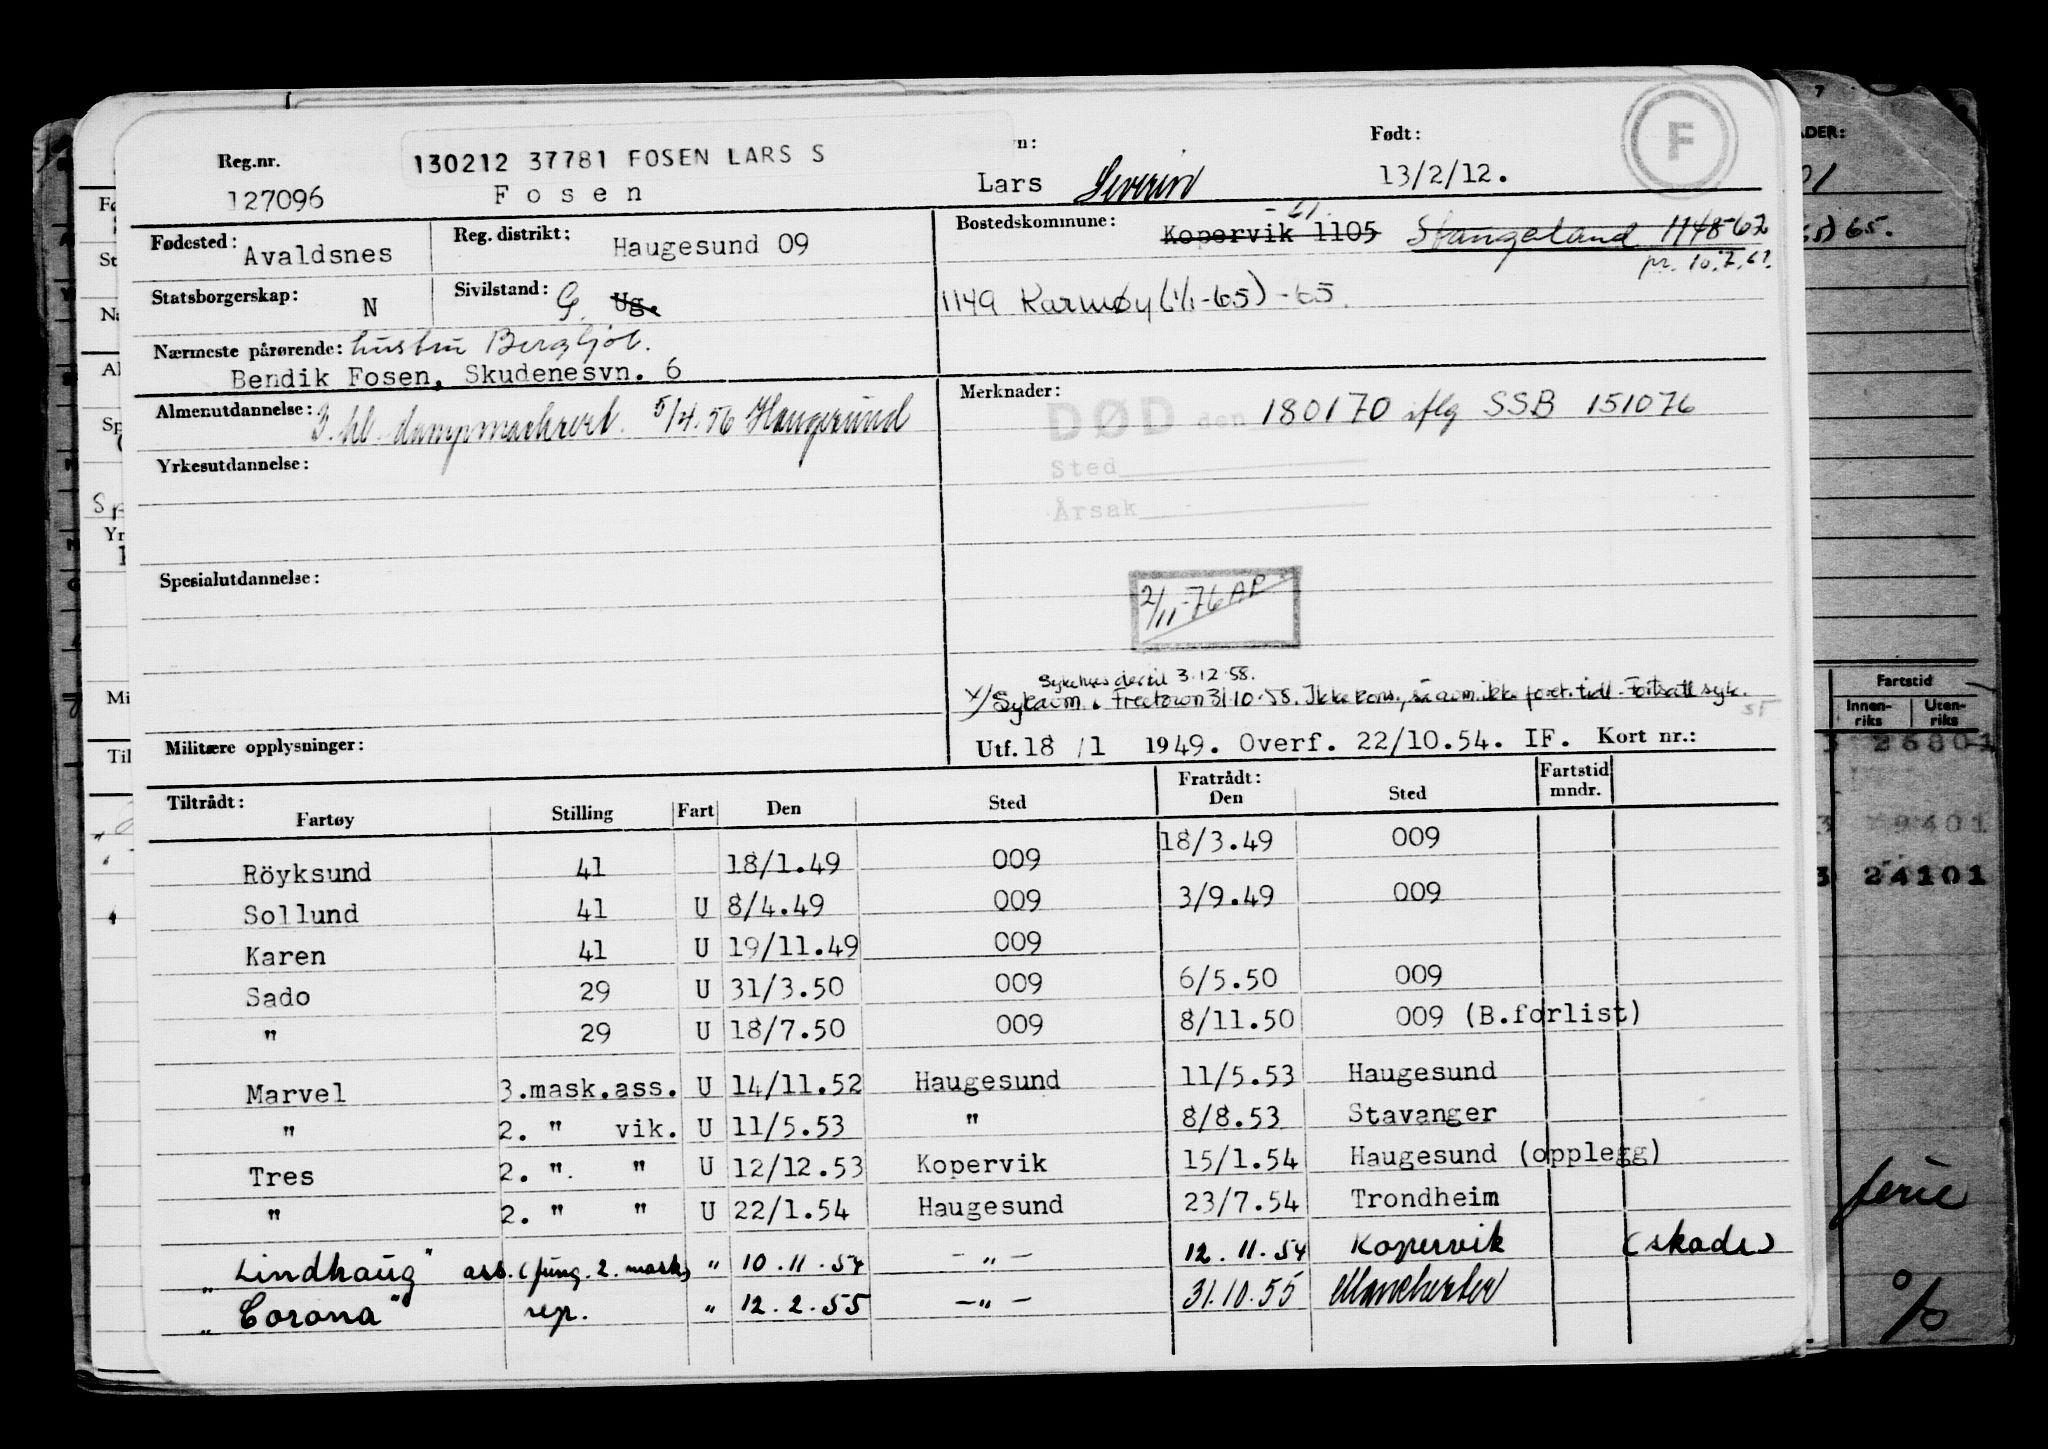 F
Reg.nr. 130212 37781 FOSEN LARS S n: Født:
127096 Fosen Lars Severin 13/2/12.
Fødested: Avaldsnes Reg. distrikt: Haugesund 09
Bostedskommune: Kopervik 1105 -61. Stangaland 1148-62
pr. 10.7.61.
Statsborgerskap: N Sivilstand: G. Ug.
1149 Karmøy (1/1-65) -65.
Nærmeste pårørende: hustru Bergljot.
Bendik Fosen, Skudenesvn. 6
Almenutdannelse: 3. kl. dampmaskcert. 5/4.56 Haugesund
Merknader:
DØD den 180170 iflg SSB 151076
Sted
Årsak
Yrkesutdannelse:
Spesialutdannelse:
2/11-76 AP
Sykehus der til 3.12.58.
x/ Sykavm. Freetown 31.10.58. Ikke kons., så avm. ikke foret. tidl. Fortsatt syk.
Militære opplysninger:
Utf. 18/1 1949. Overf. 22/10.54. IF. Kort nr.:
Tiltrådt: Fratrådt: Fartstid
Fartøy Stilling Fart Den Sted Den Sted mndr.
Röyksund 41 18/1.49 009 18/3.49 009
Sollund 41 U 8/4.49 009 3/9.49 009
Karen 41 U 19/11.49 009
Sado 29 U 31/3.50 009 6/5.50 009
" 29 U 18/7.50 009 8/11.50 009 (B.forlist)
Marvel 3.mask.ass. U 14/11.52 Haugesund 11/5.53 Haugesund
" 2. " vik. U 11/5.53 " 8/8.53 Stavanger
Tres 2. ". " U 12/12.53 Kopervik 15/1.54 Haugesund (opplegg)
" 2. " " U 22/1.54 Haugesund 23/7.54 Trondheim
"Lindhaug" ass. (fung. 2. mask) " 10.11.54 - " - 12.11.54 Kopervik (skade)
"Corona" rep. " 12.2.55 - " - 31.10.55 Manchester
ADER:
65.
Fartstid
Innen-riks Uten-riks
26801
79401
24101
ferie
%